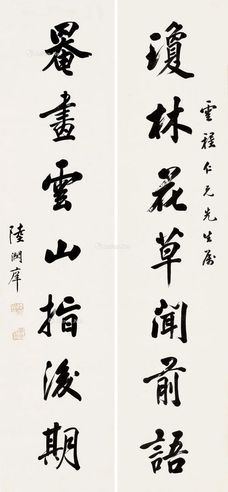 雲程仁兄先生屬
瓊林花草聞前語
罨畫雲山指後期
陸潤庠